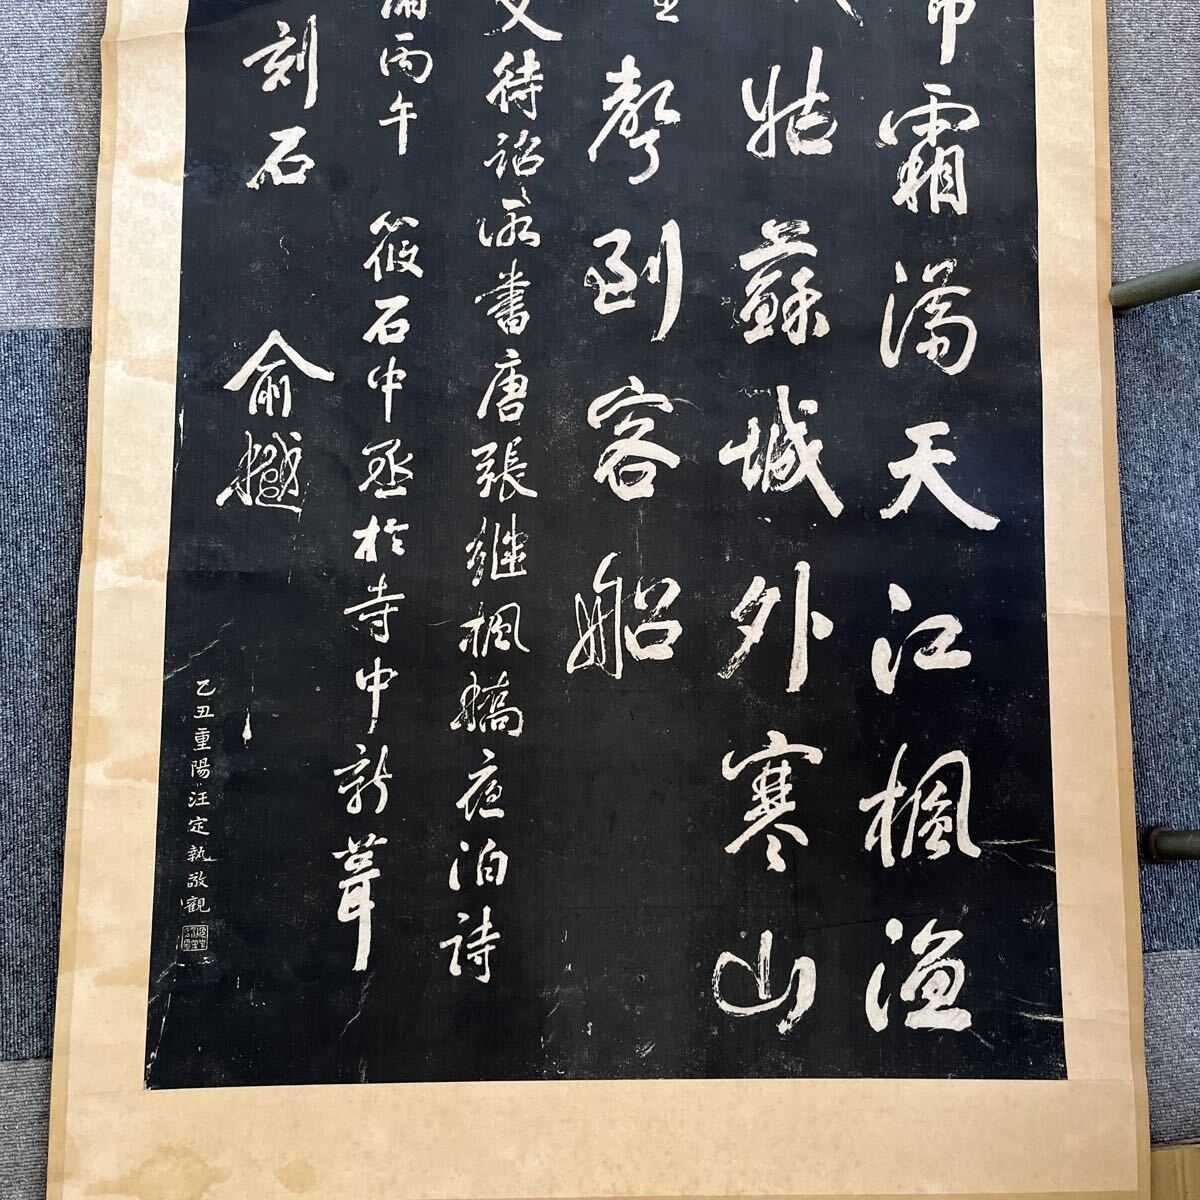 霜滿天江楓漁
姑蘇城外寒山
聲到客船
文待詔所書唐張繼楓橋夜泊詩
丙午筱石中丞於寺中新葺
刻石 俞樾
乙丑重陽汪定執敬觀